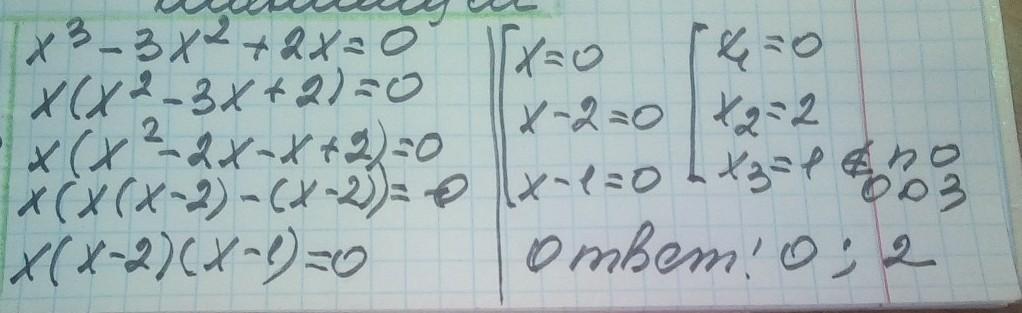 x³ - 3x² + 2x = 0
x(x² - 3x + 2) = 0
x(x² - 2x - x + 2) = 0
x(x(x-2) - (x-2)) = 0
x(x-2)(x-1) = 0
[ x = 0
x - 2 = 0
x - 1 = 0
[ x₁ = 0
x₂ = 2
x₃ = 1 ∉ по
ОДЗ
Ответ: 0; 2